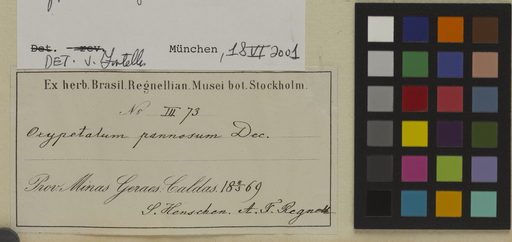 Det. rev.
München, 18 VI 2001
DET. V.
Ex herb. Brasil. Regnellian. Musei bot. Stockholm.
No III 73
Oxypetalum pannosum Dec.
Prov. Minas Geraes. Caldas. 18 69
S. Henschen. A. F. Regnell